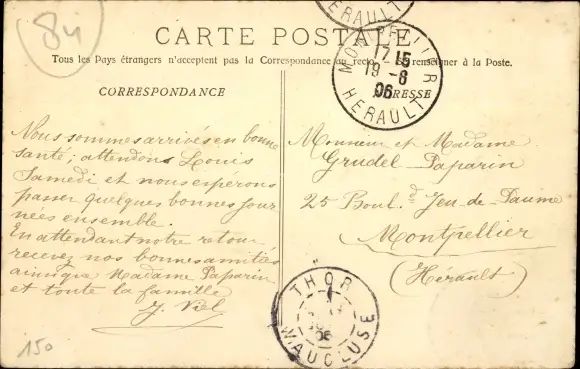 84
CARTE POSTALE
Tous les Pays étrangers n'acceptent pas la Correspondance au recto. Se renseigner à la Poste.
CORRESPONDANCE
ADRESSE
HERAULT
MONTPELLIER
17 15
19 -8
06
HERAULT
Nous sommes arrivés en bonne
santé; attendons Louis
Samedi et nous espérons
passer quelques bonnes jour
nées ensemble.
En attendant notre retour,
recevez nos bonnes amitiés
ainsi que Madame Paparin
et toute la famille
J. Viel
Monsieur et Madame
Grudel Paparin
25 Boul.d Jeu-de-Paume
Montpellier
(Hérault)
THOR
06
VAUCLUSE
150